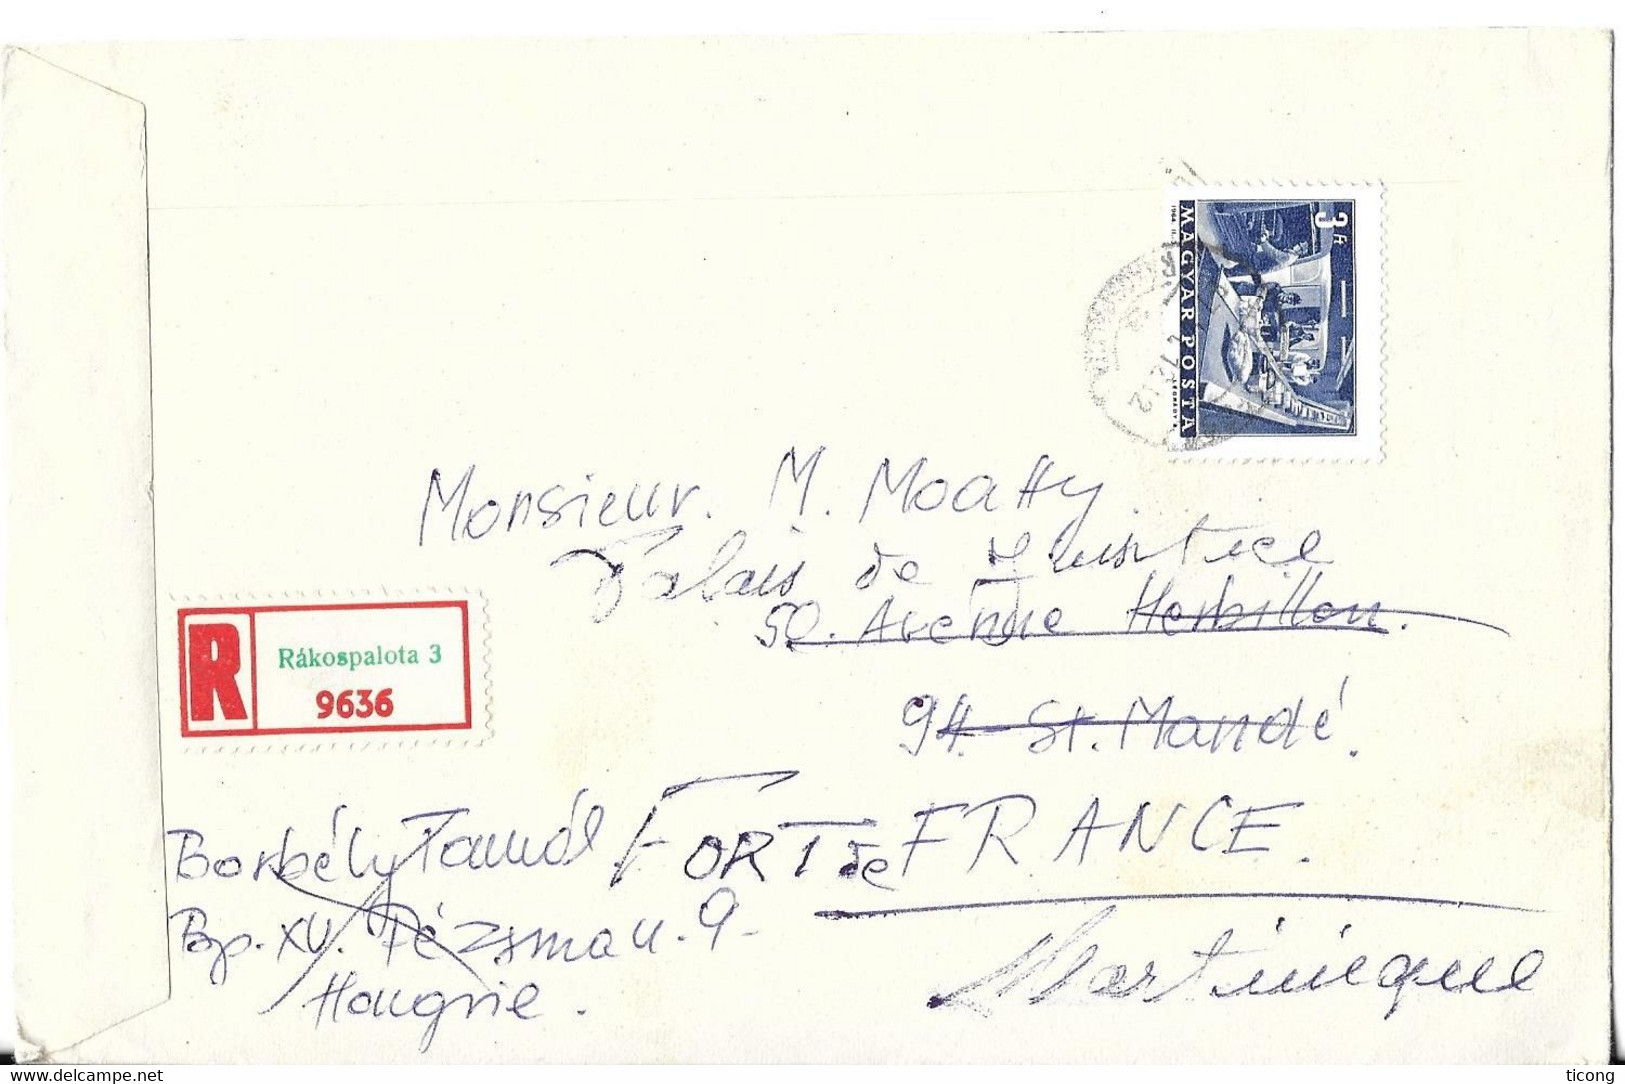 3 Ft
MAGYAR POSTA
1964
LÉGRÁDY S.
Monsieur. M. Moatty
Palais de Justice
50. Avenue Herbillon.
94. St. Mandé.
R
Rákospalota 3
9636
FORT de FRANCE.
Martinique
Borbély Tamás
Bp. XV. Pézsma u. 9.
Hongrie.
Delcampe.net
ticong